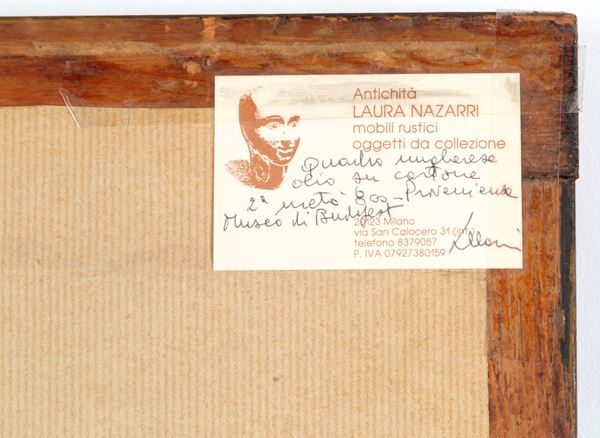 Antichità
LAURA NAZARRI
mobili rustici
oggetti da collezione
Quadro ungherese
olio su cartone
2ª metà 800 - Provenienza
Museo di Budapest
20123 Milano
via San Calocero 31 (int.)
telefono 8379057
P. IVA 07927380159